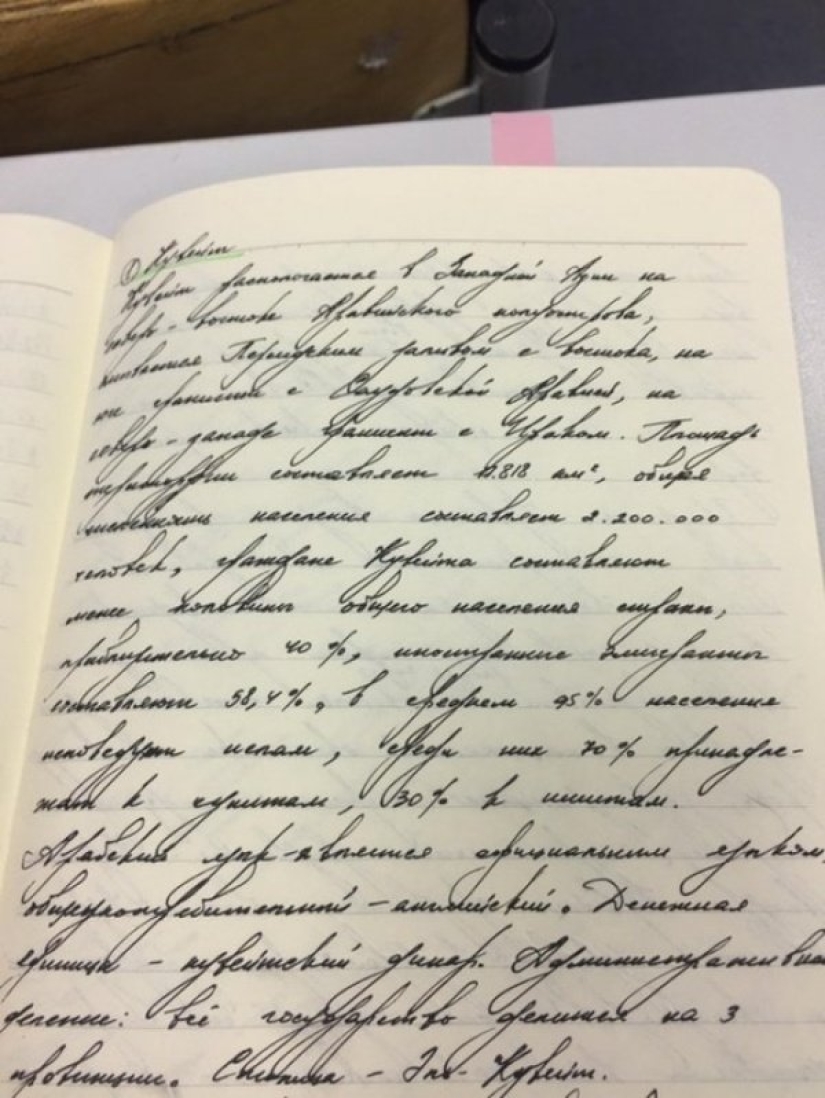 ① Кувейт
Кувейт располагается в Западной Азии на
северо-востоке Аравийского полуострова,
омывается Персидским заливом с востока, на
юге граничит с Саудовской Аравией, на
северо-западе граничит с Ираком. Площадь
территории составляет 17.818 км², общая
численность населения составляет 2.200.000
человек, граждане Кувейта составляют
менее половины общего населения страны,
приблизительно 40%, иностранные эмигранты
составляют 58,4%, в среднем 95% населения
исповедует ислам, среди них 70% принадле-
жат к суннитам, 30% к шиитам.
Арабский язык - является официальным языком,
общеупотребительный - английский. Денежная
единица - кувейтский динар. Административное
деление: всё государство делится на 3
провинции. Столица - Эль-Кувейт.